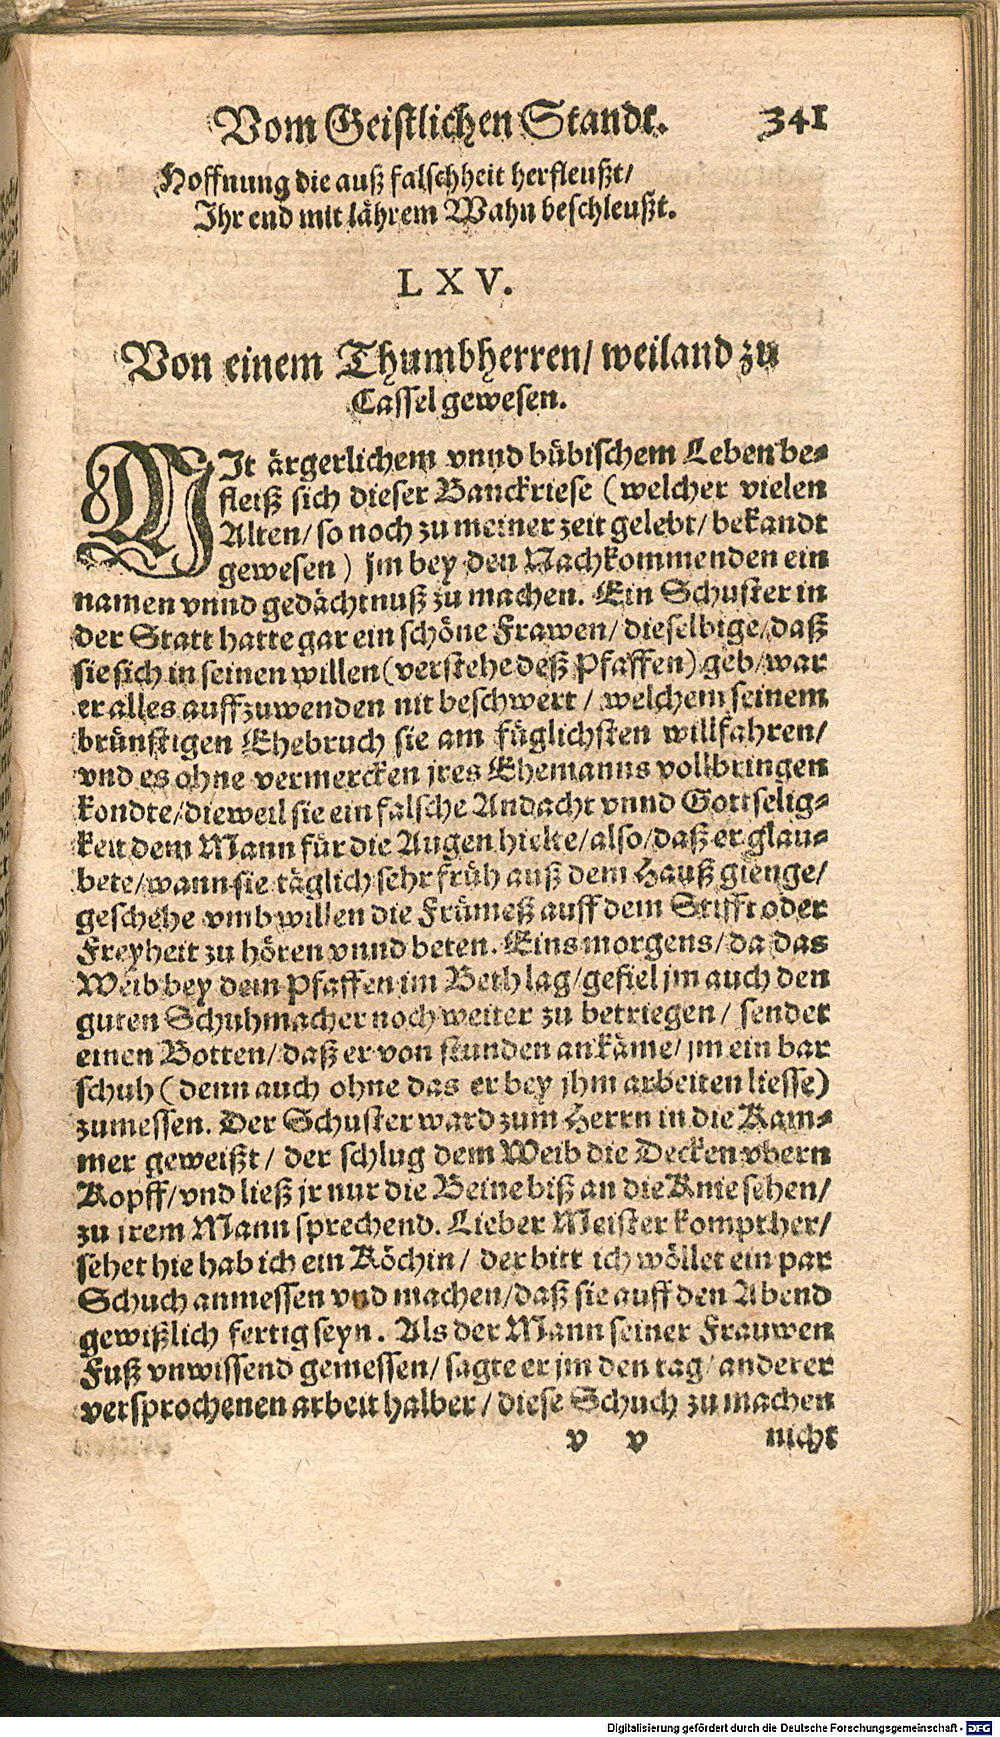 Vom Geistlichen Stande. 341
Hoffnung die auß falschheit herfleußt/
Ihr end mit lährem Wahn beschleußt.
LXV.
Von einem Thumbherren/ weiland zu
Cassel gewesen.
MIt ärgerlichem vnnd bübischem Leben be-
fleiß sich dieser Banckriese (welcher vielen
Alten/ so noch zu meiner zeit gelebt/ bekandt
gewesen) jm bey den Nachkommenden ein
namen vnnd gedächtnuß zu machen. Ein Schuster in
der Statt hatte gar ein schöne Frawen/ dieselbige/ daß
sie sich in seinen willen (verstehe deß Pfaffen) geb/ war
er alles auffzuwenden nit beschwert/ welchem seinem
brünstigen Ehebruch sie am füglichsten willfahren/
vnd es ohne vermercken jres Ehemanns vollbringen
kondte/ dieweil sie ein falsche Andacht vnnd Gottselig-
keit dem Mann für die Augen hielte/ also/ daß er glau-
bete/ wann sie täglich sehr früh auß dem Hauß gienge/
geschehe vmb willen die Frümeß auff dem Stifft oder
Freyheit zu hören vnnd beten. Eins morgens/ da das
Weib bey dem Pfaffen im Beth lag/ gefiel jm auch den
guten Schuhmacher noch weiter zu betriegen/ sendet
einen Botten/ daß er von stunden an käme/ jm ein bar
schuh (denn auch ohne das er bey jhm arbeiten liesse)
zumessen. Der Schuster ward zum Herrn in die Kam-
mer geweißt/ der schlug dem Weib die Decken vbern
Kopff/ vnd ließ jr nur die Beine biß an die Knie sehen/
zu jrem Mann sprechend. Lieber Meister kompt her/
sehet hie hab ich ein Köchin/ der bitt ich wöllet ein par
Schuch anmessen vnd machen/ daß sie auff den Abend
gewißlich fertig seyn. Als der Mann seiner Frauwen
Fuß vnwissend gemessen/ sagte er jm den tag/ anderer
versprochenen arbeit halber/ diese Schuch zu machen
v v nicht
Digitalisierung gefördert durch die Deutsche Forschungsgemeinschaft - DFG